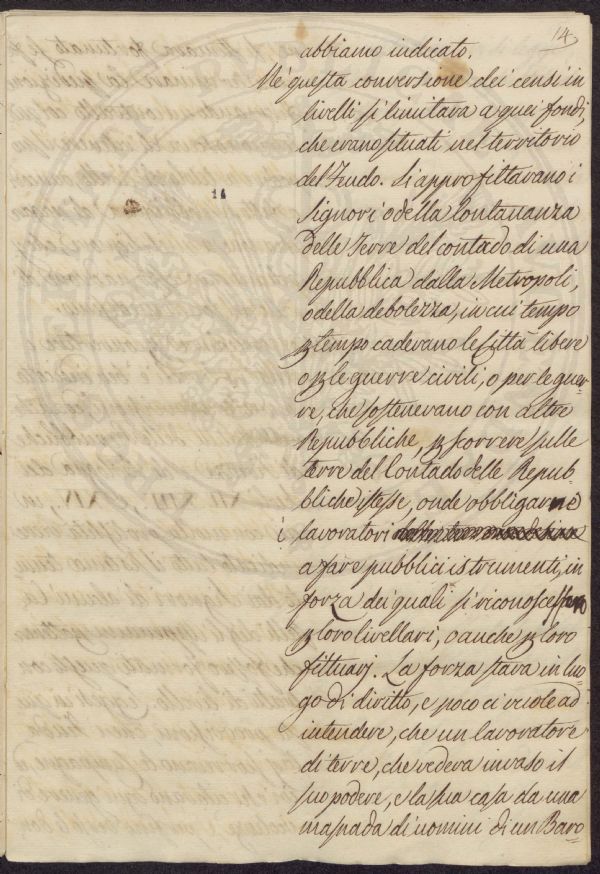 14
abbiamo indicato.
Nè questa conversione dei censi in
livelli si limitava a quei fondi,
che erano situati nel territorio
del Feudo. Si approfittavano i
Signori o della lontananza
delle Terre del contado di una
Repubblica dalla Metropoli,
o della debolezza, in cui tempo
p tempo cadevano le Città libere
o p le guerre civili, o per le guer=
re, che sostenevano con altre
Repubbliche, p scorrere sulle
terre del Contado delle Repub=
bliche stesse, onde obbligarne
i lavoratori
a fare pubblici istrumenti, in
forza dei quali si riconoscessero
p loro livellarj, o anche p loro
fittuarj. La forza stava in luo=
go di diritto, e poco ci vuole ad
intendere, che un lavoratore
di terre, che vedeva invaso il
suo podere, e la sua casa da una
masnada di uomini di un Baro=
14